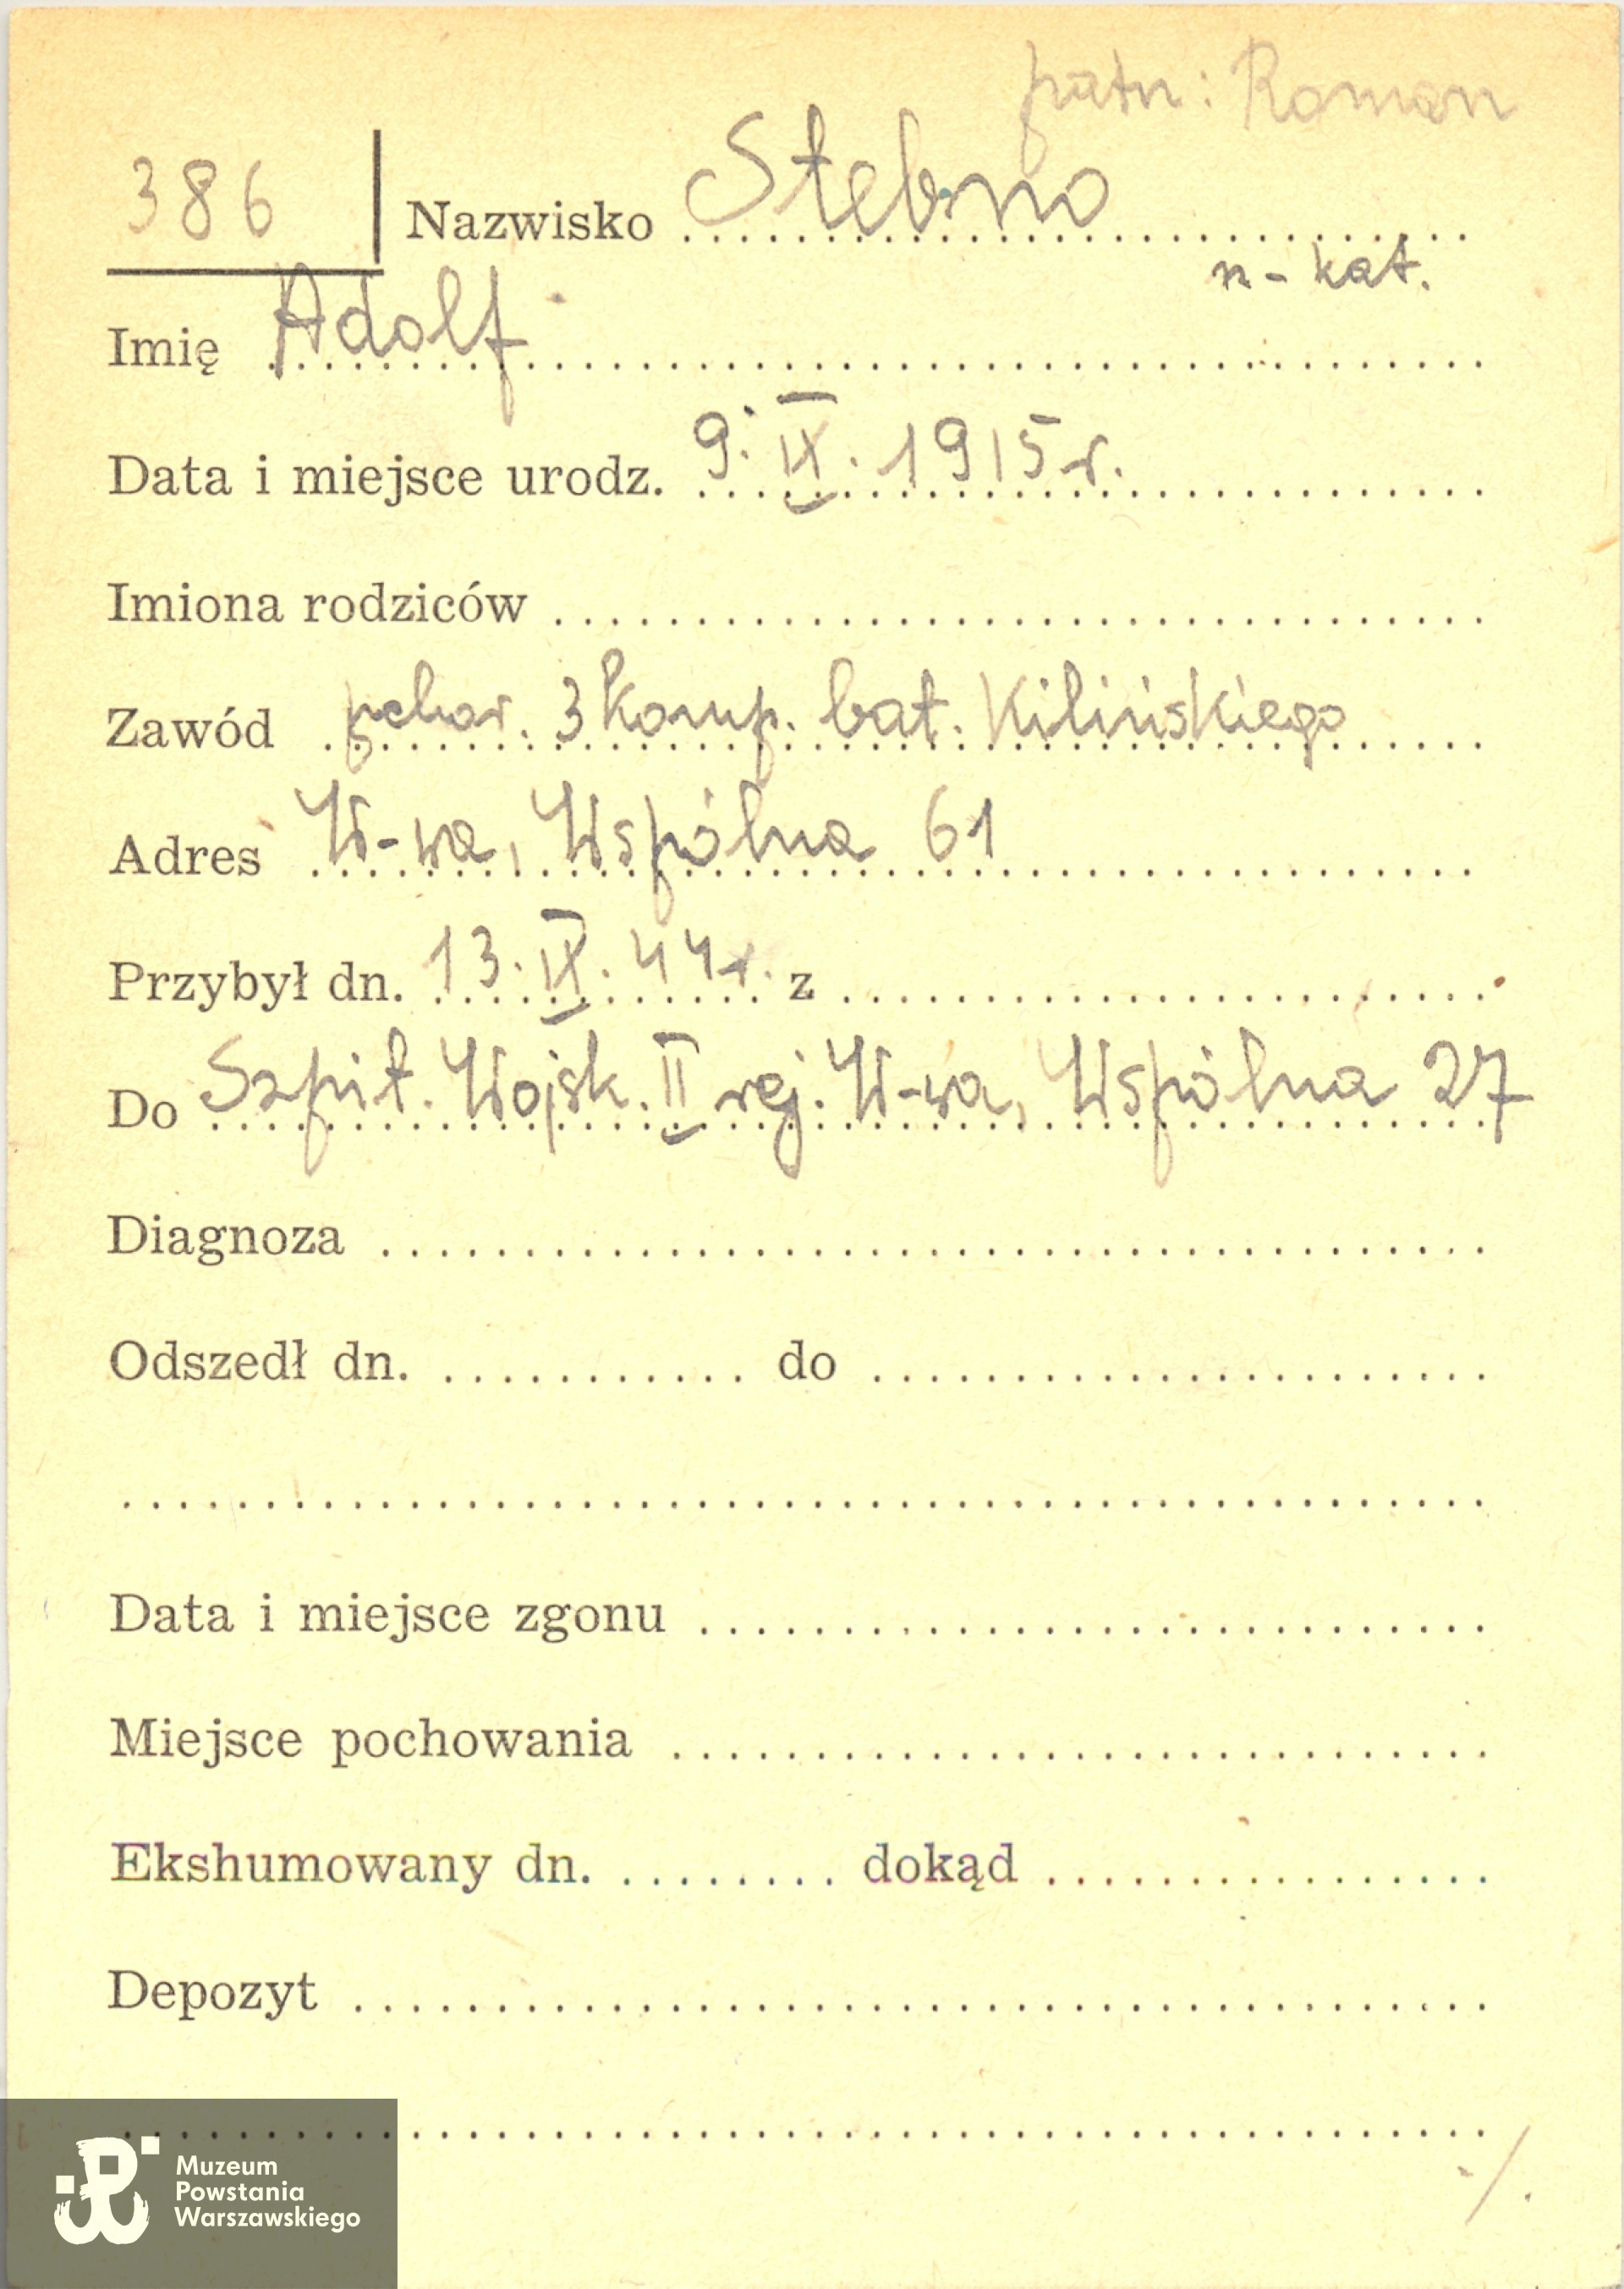 patrz: Roman
386 Nazwisko Stebno
rz-kat.
Imię Adolf
Data i miejsce urodz. 9. IX. 1915 r.
Imiona rodziców
Zawód pchor. 3 komp. bat. Kilińskiego
Adres W-wa, Wspólna 61
Przybył dn. 13. IX. 44 r. z
Do Szpit. Wojsk. II rej. W-wa, Wspólna 27
Diagnoza
Odszedł dn. do
Data i miejsce zgonu
Miejsce pochowania
Ekshumowany dn. dokąd
Depozyt
Muzeum
Powstania
Warszawskiego
./.